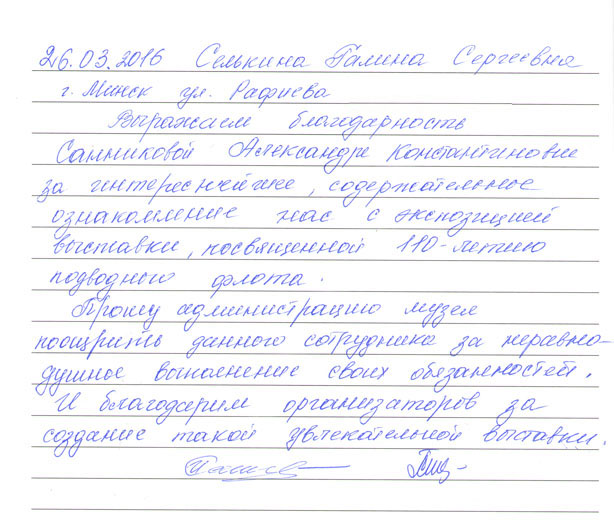 26.03.2016 Селькина Галина Сергеевна
г. Минск ул. Рафиева
Выражаем благодарность
Санниковой Александре Константиновне
за интереснейшее, содержательное
ознакомление нас с экспозицией
выставки, посвященной 110-летию
подводного флота.
Прошу администрацию музея
поощрить данного сотрудника за неравно-
душное выполнение своих обязанностей.
И благодарим организаторов за
создание такой увлекательной выставки.